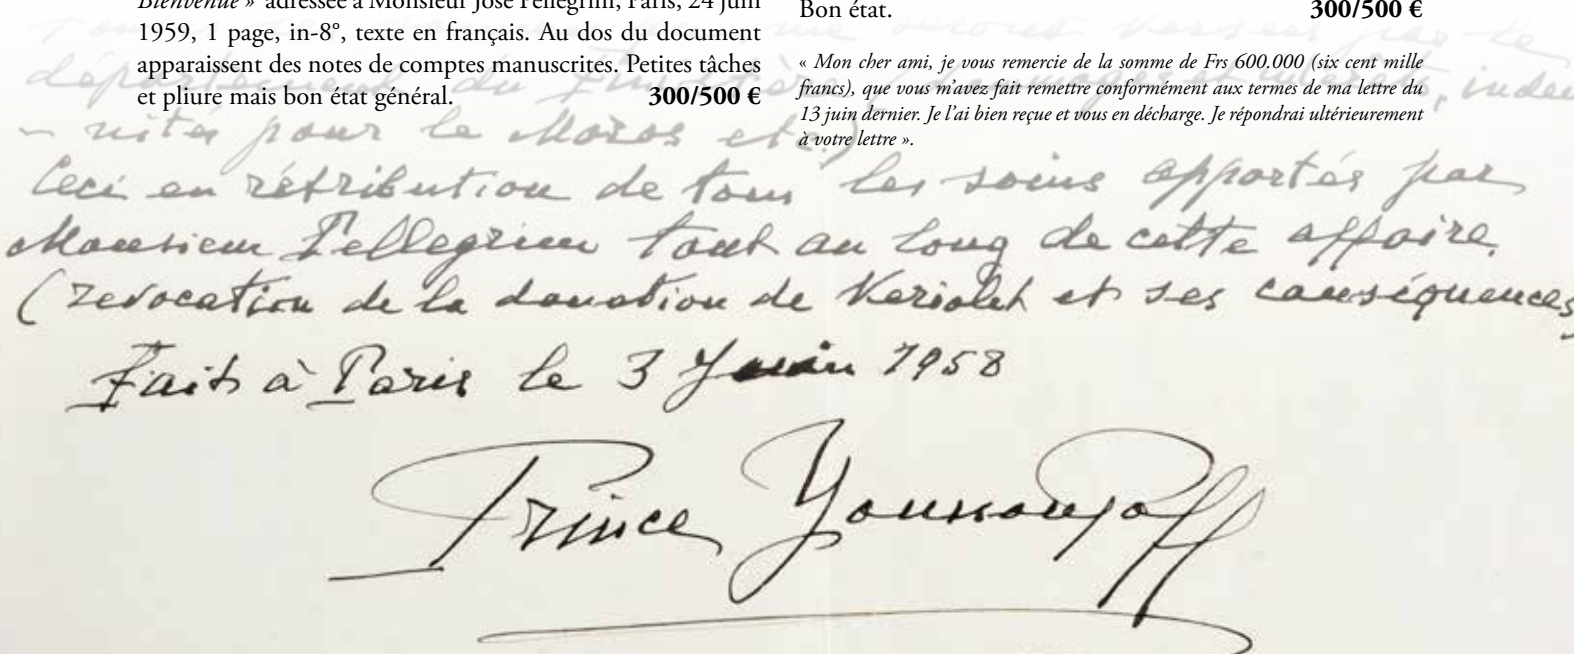 Bienvenue » adressée à Monsieur José Pellegrini, Paris, 24 juin
1959, 1 page, in-8°, texte en français. Au dos du document
apparaissent des notes de comptes manuscrites. Petites tâches
et pliure mais bon état général. 300/500 €
Bon état. 300/500 €
« Mon cher ami, je vous remercie de la somme de Frs 600.000 (six cent mille
francs), que vous m'avez fait remettre conformément aux termes de ma lettre du
13 juin dernier. Je l'ai bien reçue et vous en décharge. Je répondrai ultérieurement
à votre lettre ».
seront versées par le
département du Finistère et intérêts, indem
- nités pour le Moros etc.)
Ceci en rétribution de tous les soins apportés par
Monsieur Pellegrini tout au long de cette affaire.
(revocation de la donation de Keriolet et ses conséquences
Fait à Paris le 3 Juin 1958
Prince Youssoupoff